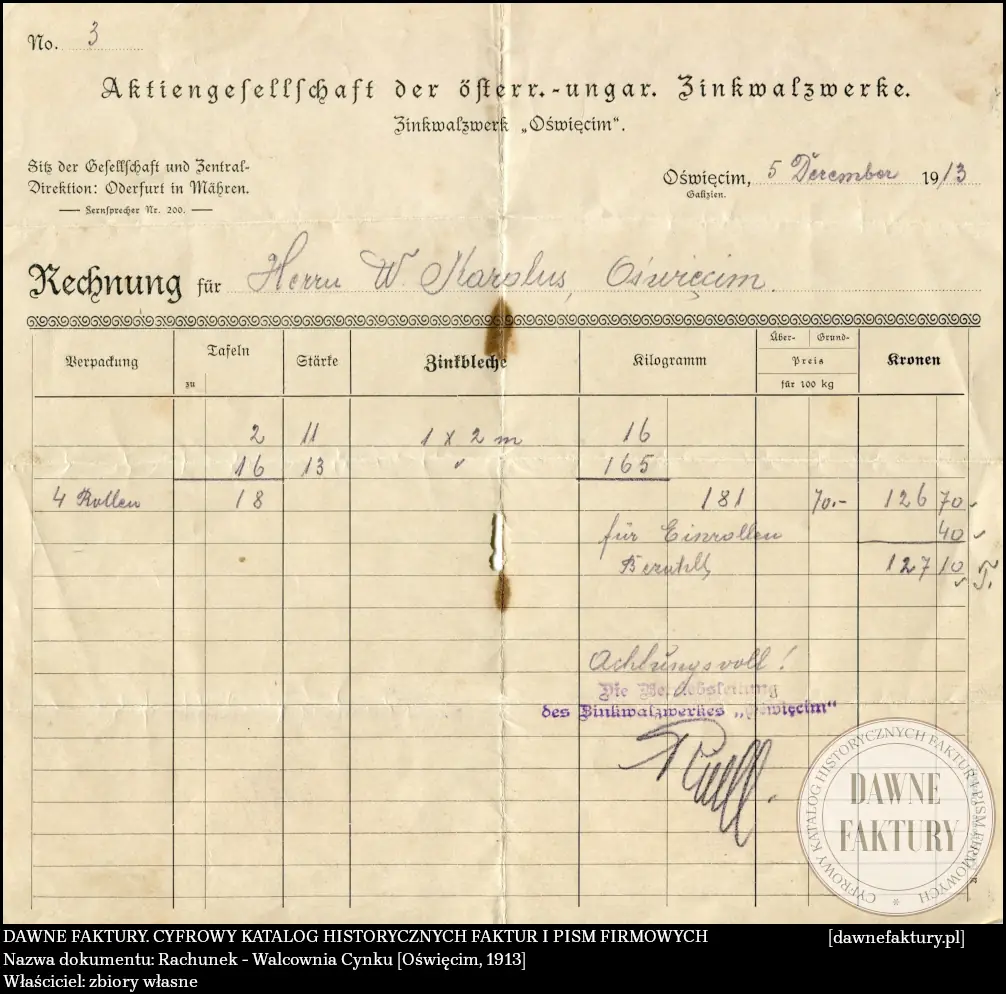 No. 3
Aktiengesellschaft der österr.-ungar. Zinkwalzwerke.
Zinkwalzwerk „Oświęcim“.
Sitz der Gesellschaft und Zentral-
Direktion: Oderfurt in Mähren.
Fernsprecher Nr. 200.
Oświęcim, 5 December 1913
Galizien.
Rechnung für Herrn W. Karolus, Oświęcim.
Verpackung Tafeln zu Stärke Zinkbleche Kilogramm Über- Grund- Preis für 100 kg Kronen
2 11 1 x 2 m 16
16 13 〃 165
4 Rollen 18 181 70.- 126 70
für Einrollen 40
Bezahlt 127 10
Achtungsvoll!
Die Betriebsleitung
des Zinkwalzwerkes „Oświęcim“
DAWNE
FAKTURY
CYFROWY KATALOG HISTORYCZNYCH FAKTUR I PISM FIRMOWYCH
DAWNE FAKTURY. CYFROWY KATALOG HISTORYCZNYCH FAKTUR I PISM FIRMOWYCH [dawnefaktury.pl]
Nazwa dokumentu: Rachunek - Walcownia Cynku [Oświęcim, 1913]
Właściciel: zbiory własne